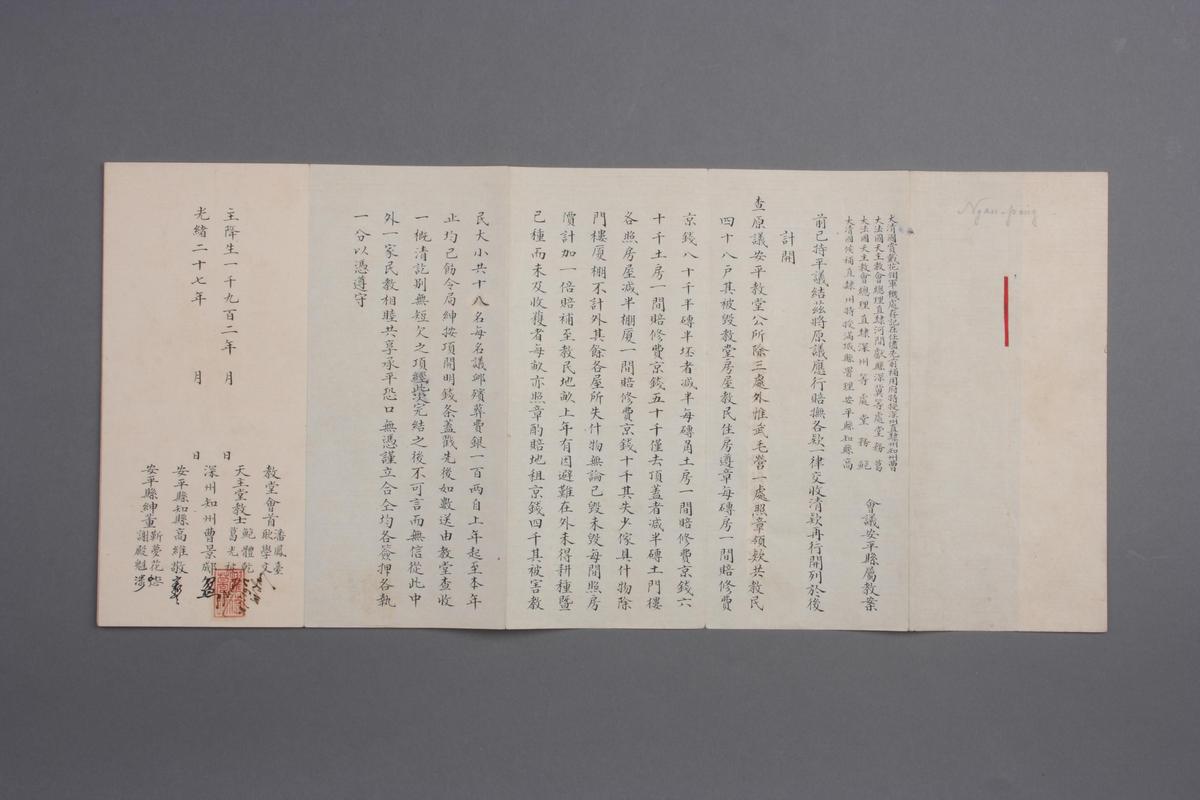 Ngan-ping
大清國賞戴花翎軍機處存記在任儘先前補用府特授深州直隸州知州曹
大法國天主教會總理直隸河間獻縣深冀等處堂務葛
大法國天主教會總理直隸深州等處堂務鮑
大清國候補直隸州特授滿城縣署理安平縣知縣高
會議安平縣屬教案
前已持平議結茲將原議應行賠撫各欵一律交收清欵再行開列於後
計開
查原議安平教堂公所除三處外惟武毛營一處照章領欵共教民
四十八戶其被毀教堂房屋教民住房遵章每磚房一間賠修費
京錢八十千半磚半坯者減半每磚甬土房一間賠修費京錢六
十千土房一間賠修費京錢五十千僅去頂蓋者減半磚土門樓
各照房屋減半棚廈一間賠修費京錢十千其失少傢具什物除
門樓廈棚不計外其餘各屋所失什物無論已毀未毀每間照房
價計加一倍賠補至教民地畝上年有因避難在外未得耕種暨
已種而未及收穫者每畝亦照章酌賠地租京錢四千其被害教
民大小共十八名每名議卹殯葬費銀一百兩自上年起至本年
止均已飭令局紳按項開明錢条蓋戳先後如數送由教堂查收
一概清訖別無短欠之項經此次完結之後不可言而無信從此中
外一家民教相睦共享承平恐口無憑謹立合仝均各簽押各執
一分以憑遵守
主降生一千九百二年 月 日
光緒二十七年 月 日
教堂會首 潘鳳臺 耿學文
天主堂教士 鮑體乾 葛光被
深州知州曹景郕
安平縣知縣高維敬
安平縣紳董 靳夢花 謝殿魁